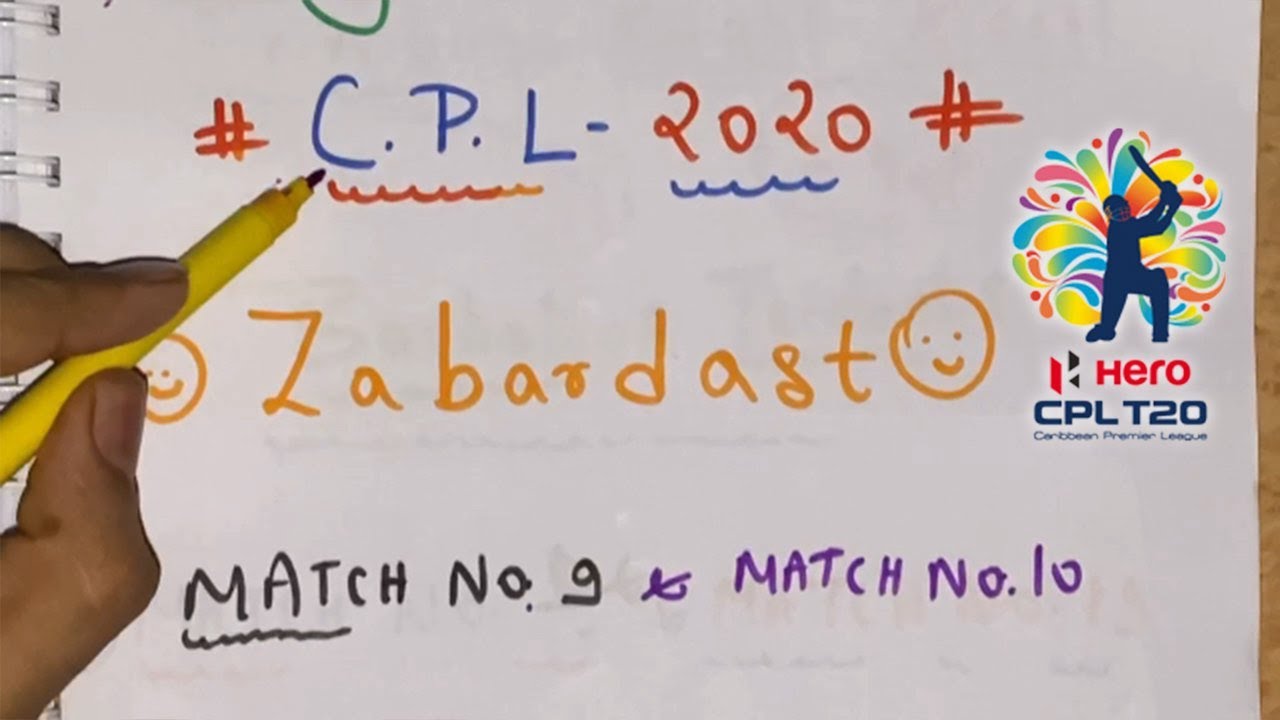 # C.P.L - २०२० #
Zabardast
MATCH No. 9 & MATCH No. 10
HERO
CPL T20
Caribbean Premier League